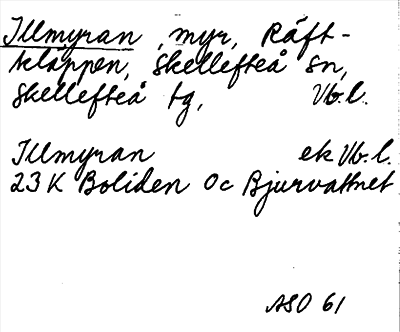 Illmyran, myr, Räft-
kläppen, Skellefteå sn,
Skellefteå tg, Vb.l.
Illmyran ek Vb.l.
23K Boliden 0c Bjurvattnet
ASO 61